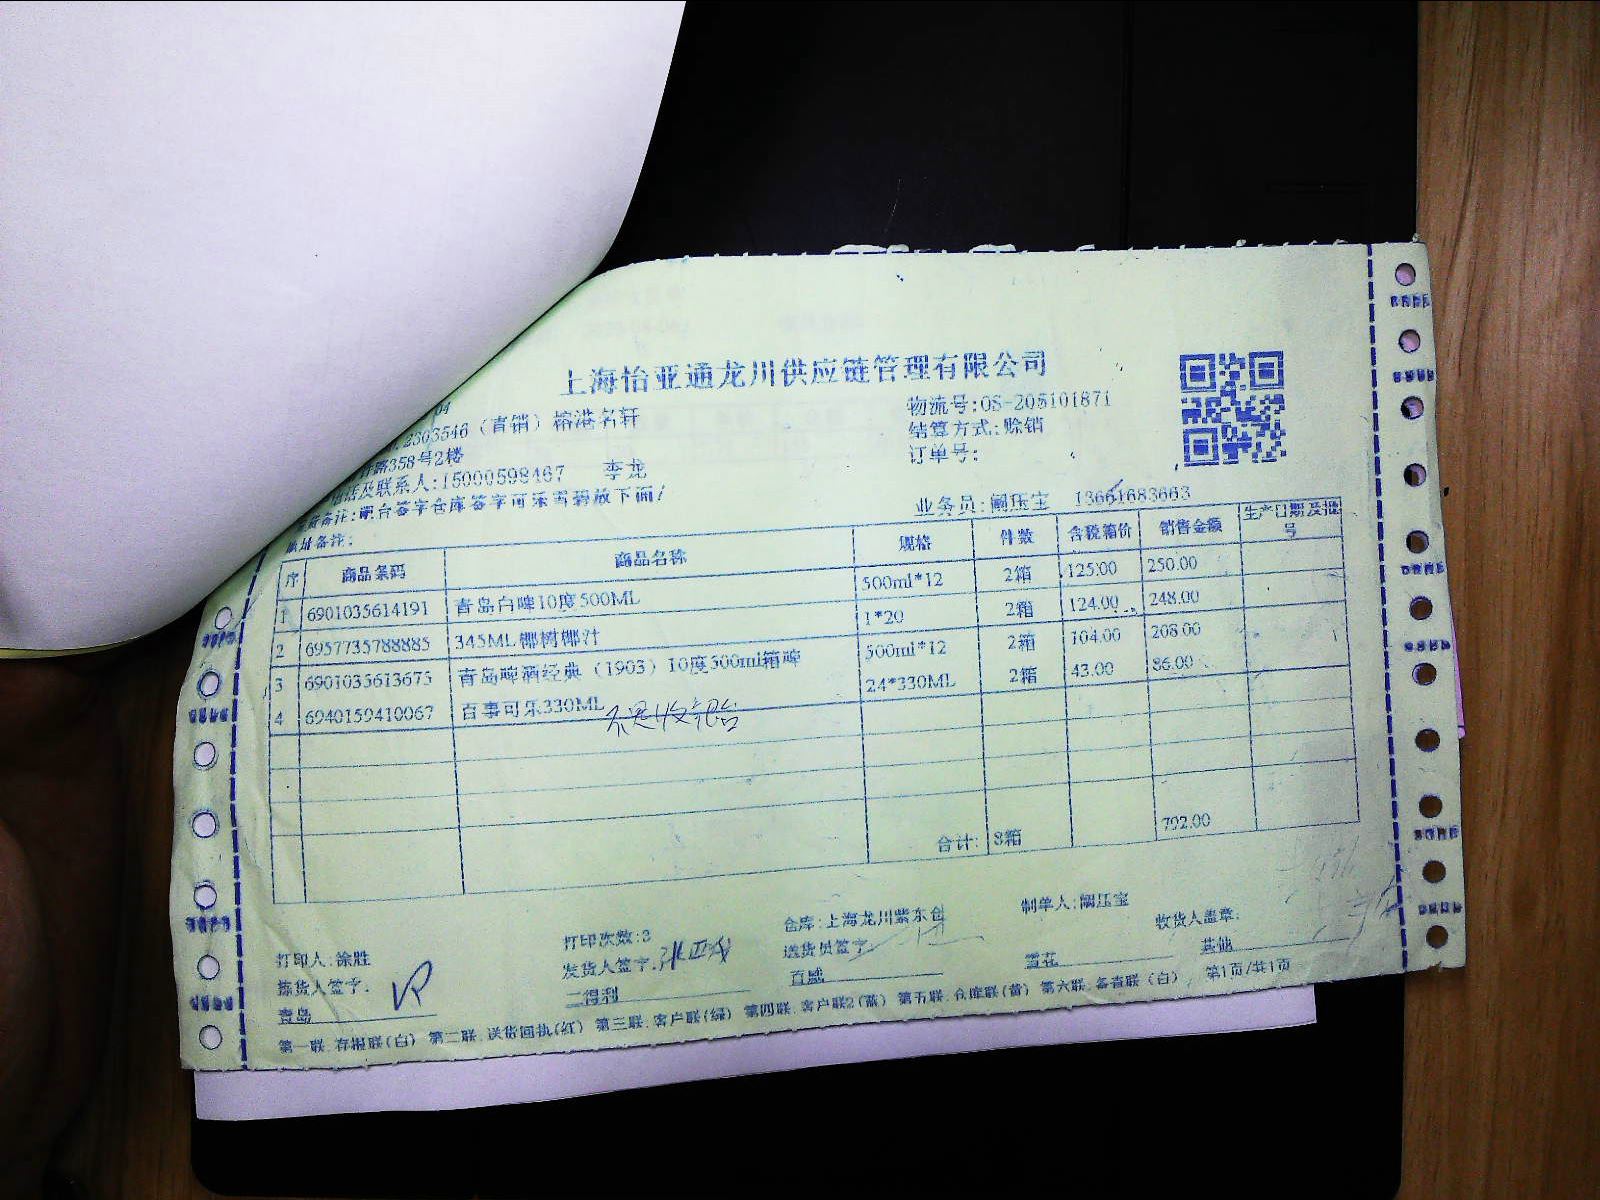 上海怡亚通龙川供应链管理有限公司
04
2303546（直销）榕港名轩
物流号:OS-205101871
路358号2楼
结算方式:赊销
话及联系人:15000598467 李龙
订单号:
备注:前台签字仓库签字可乐雪碧放下面!
业务员:阚压宝 13661683663
地址备注:
序 商品条码 商品名称 规格 件数 含税箱价 销售金额 生产日期及批号
1 6901035614191 青岛白啤10度500ML 500ml*12 2箱 125.00 250.00
2 6957735788885 345ML椰树椰汁 1*20 2箱 124.00 248.00
3 6901035613675 青岛啤酒经典（1903）10度500ml箱啤 500ml*12 2箱 104.00 208.00
4 6940159410067 百事可乐330ML 24*330ML 2箱 43.00 86.00
合计: 8箱 792.00
打印人:徐胜 打印次数:3 仓库:上海龙川紫东仓 制单人:阚压宝 收货人盖章:
拣货人签字: 发货人签字: 送货员签字
青岛 三得利 百威 雪花 其他
第一联.存根联(白) 第二联.送货回执(红) 第三联.客户联(绿) 第四联.客户联2(蓝) 第五联.仓库联(黄) 第六联.备查联(白) 第1页/共1页